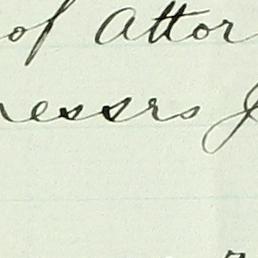 of Attor
essrs J